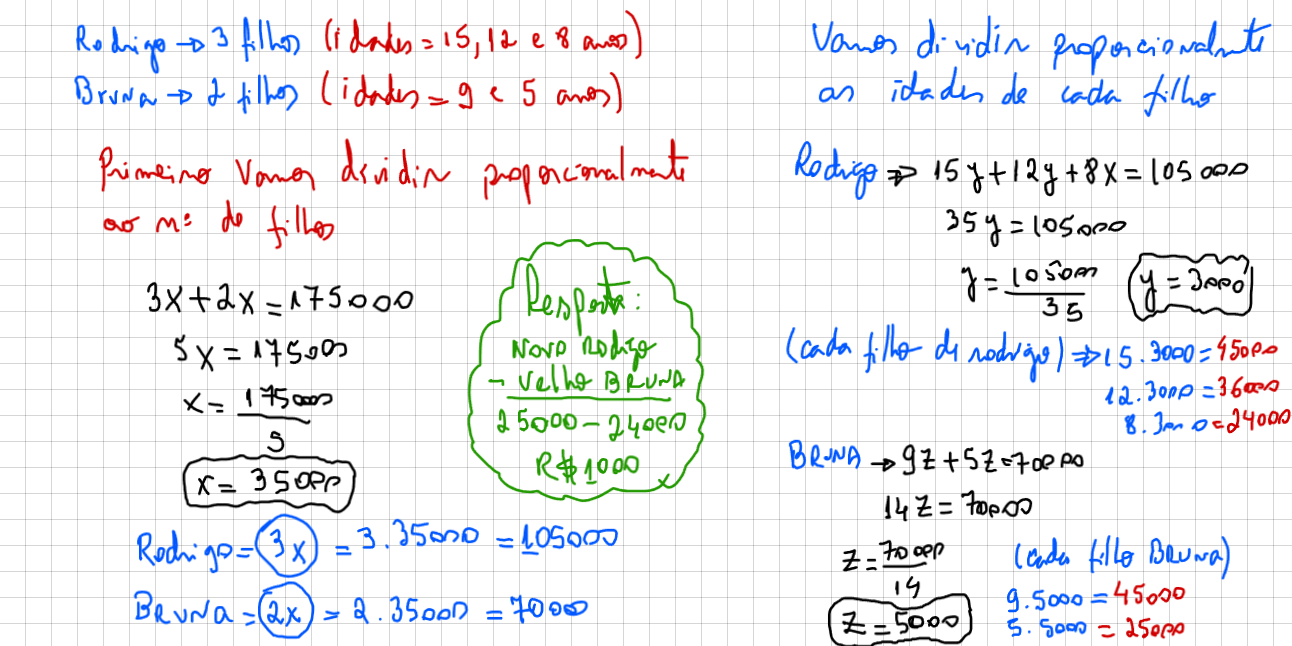 Rodrigo → 3 filhos (idades = 15, 12 e 8 anos)
Bruna → 2 filhos (idades = 9 e 5 anos)
Primeiro vamos dividir proporcionalmente
ao nº de filhos
3x + 2x = 175000
5x = 175000
x = 175000
5
x = 35000
Rodrigo = 3x = 3.35000 = 105000
BRUNA = 2x = 2.35000 = 70000
Resposta:
Novo Rodrigo
- Velho BRUNA
25000 - 24000
R$ 1000
Vamos dividir proporcionalmente
as idades de cada filho
Rodrigo ⇒ 15y + 12y + 8x = 105000
35y = 105000
y = 105000
35
y = 3000
(cada filho de rodrigo) ⇒ 15.3000 = 45000
12.3000 = 36000
8.3000 = 24000
BRUNA → 9z + 5z = 70000
14z = 70000
z = 70000
14
z = 5000
(cada filho BRUNA)
9.5000 = 45000
5.5000 = 25000